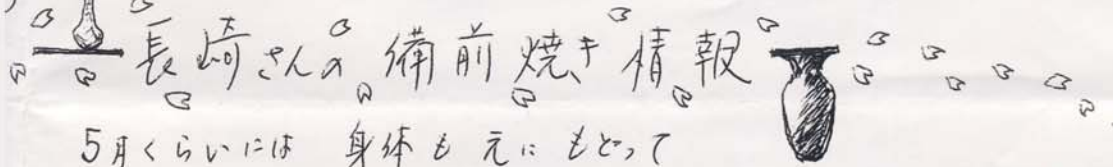 長崎さんの備前焼き情報
5月くらいには 身体も元にもどって